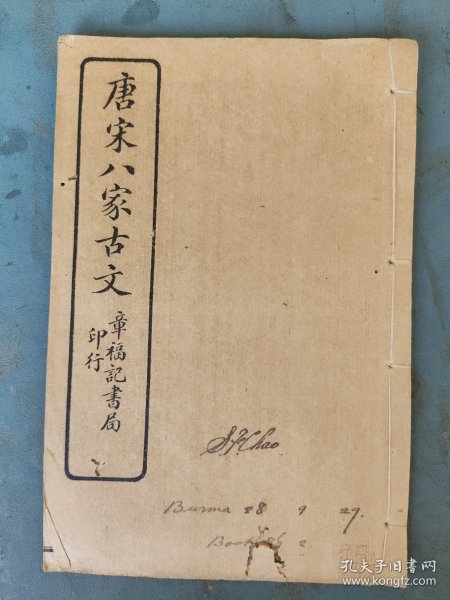 唐宋八家古文
章福記書局
印行
S.F.Chao.
Burma 28 9 29.
孔夫子旧书网
www.kongfz.com